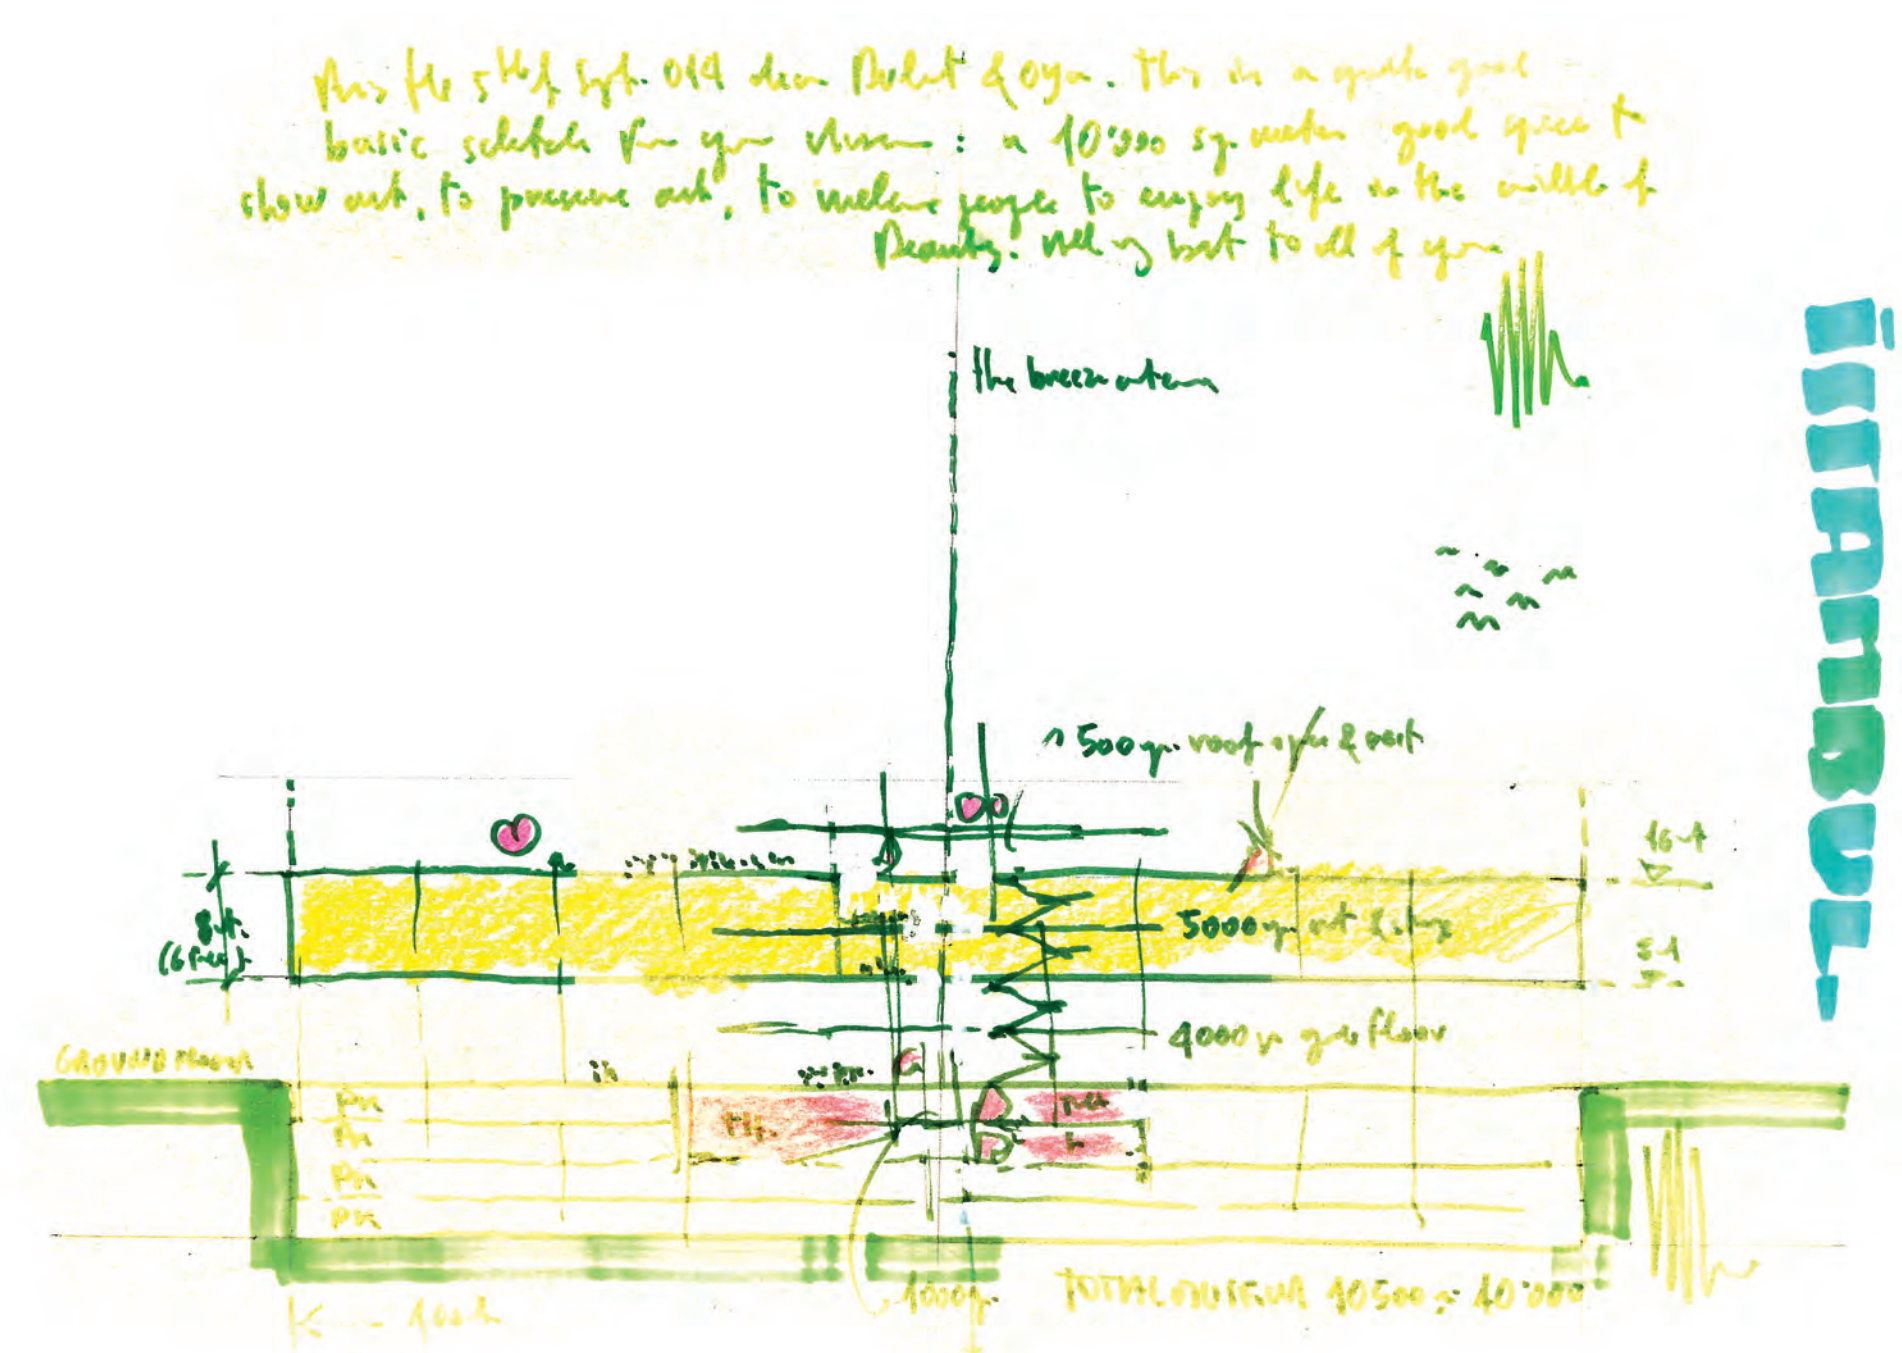 this the 5th of Sept. 014 dear Bulent & Oya. This is a quite good
basic scketch for your Museum : a 10'000 sq. meter good space to
show art, to preserve art, to welcome people to enjoy life in the middle of
Beauty. All my best to all of you
the breeze antenna
500 roof &
16
8 mt.
5000 art &
8
4000 floor
GROUND FLOOR
PK
PK
PK
PK
1000
TOTAL MUSEUM 10500 10'000
ISTANBUL